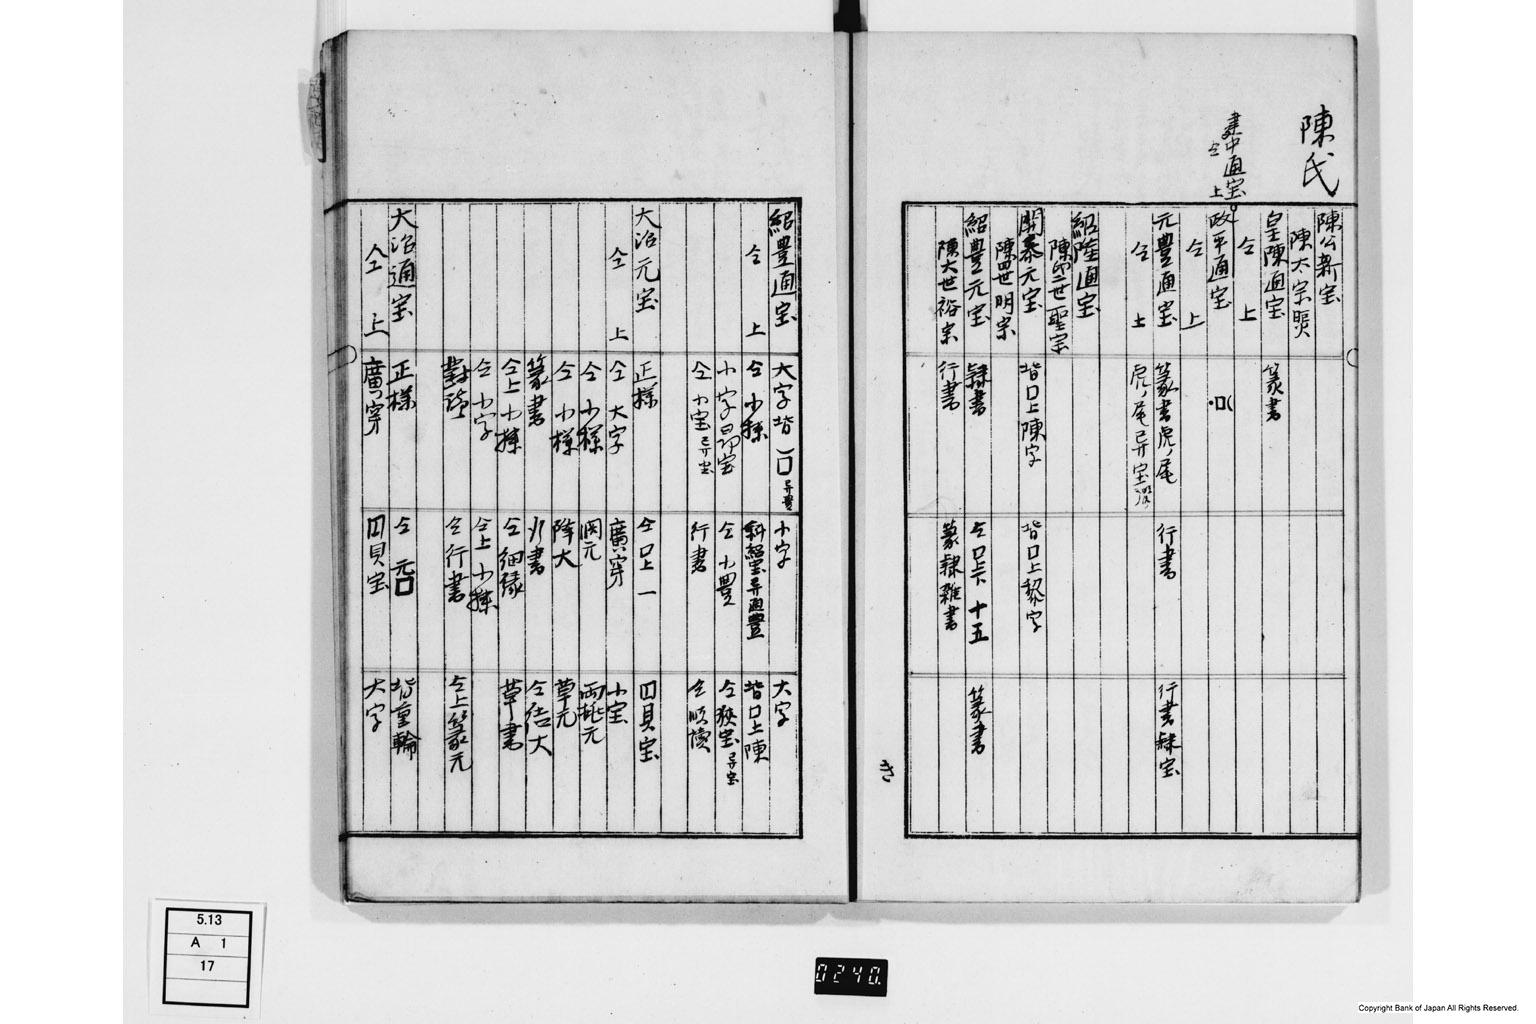 陳氏
陳公新宝
陳太宗煚
皇陳通宝
仝 上
篆書
建中通宝
仝 上
政平通宝
仝 上
元豊通宝
篆書虎ノ尾
行書
行書隷宝
仝 上
紹隆通宝
陳第二世聖宗
開泰元宝
背口上陳字
背口上黎字
陳四世明宗
紹豊元宝
隷書
十五
篆書
陳六世裕宗
行書
篆隷雑書
き
紹豊通宝
大字背
小字
大字
仝 上
仝 小様
背口上陳
仝 小豊
仝狭宝
行書
仝順読
大治元宝
正様
仝口上一
四貝宝
仝 上
仝 大字
廣穿
小宝
仝 小様
濶元
仝 小様
降大
草元
篆書
行書
仝 大
仝上小様
仝細縁
草書
仝 小字
仝上 小様
仝行書
仝上篆元
大治通宝
正様
仝 元口
背重輪
仝 上
廣穿
四貝宝
大字
5.13
A 1
17
0240.
Copyright Bank of Japan All Rights Reserved.